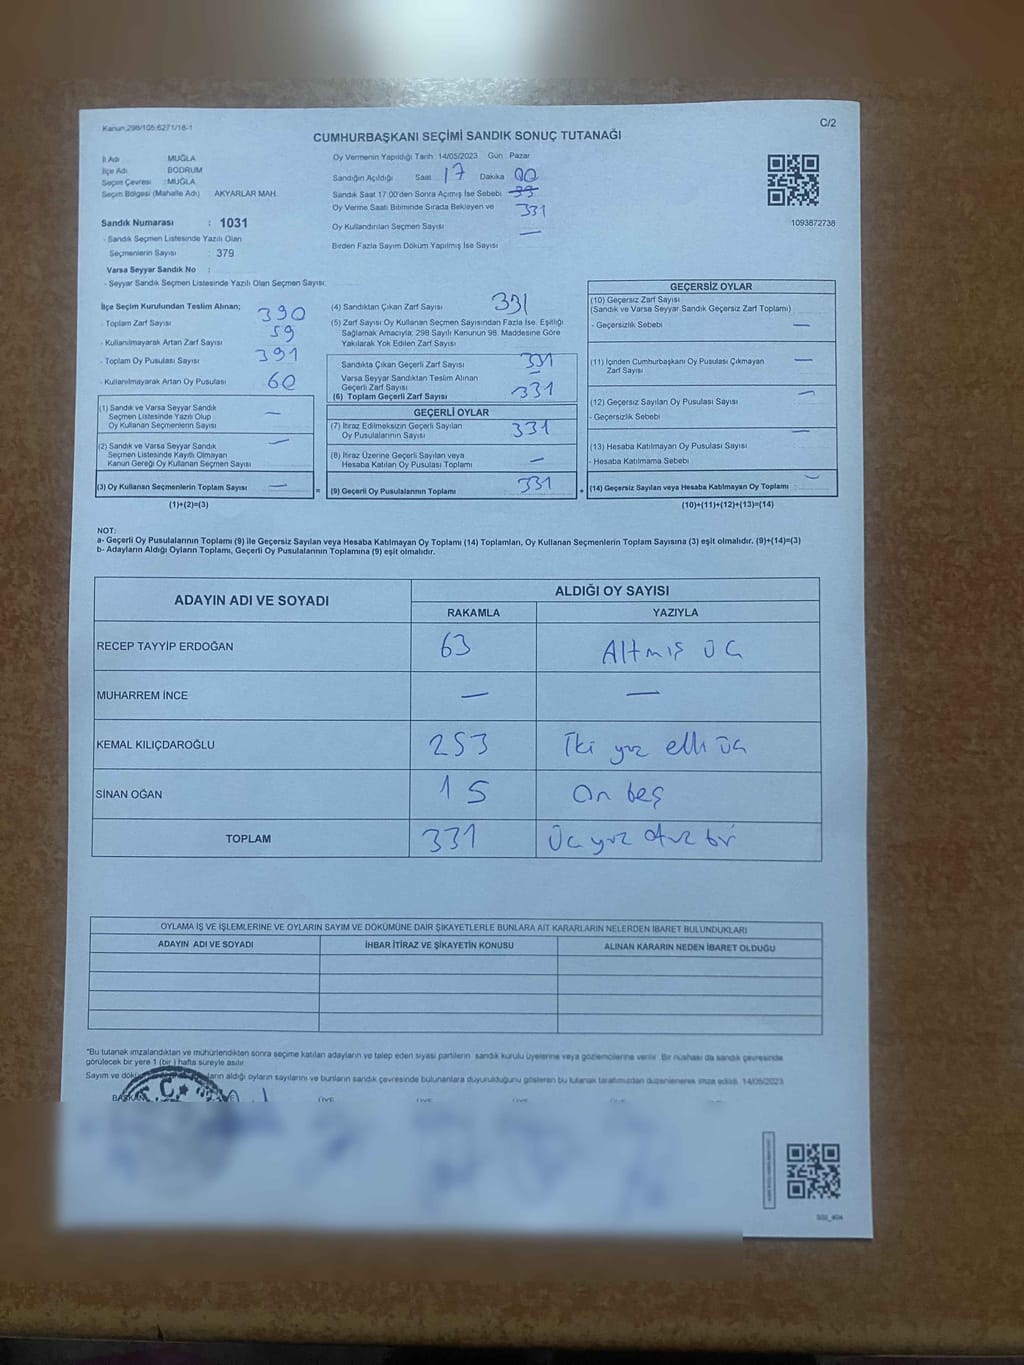 Kanun:298/105;6271/18-1
C/2
CUMHURBAŞKANI SEÇİMİ SANDIK SONUÇ TUTANAĞI
İl Adı MUĞLA
İlçe Adı BODRUM
Seçim Çevresi :MUĞLA
Seçim Bölgesi (Mahalle Adı) AKYARLAR MAH.
Sandık Numarası : 1031
- Sandık Seçmen Listesinde Yazılı Olan
Seçmenlerin Sayısı : 379
Varsa Seyyar Sandık No :
- Seyyar Sandık Seçmen Listesinde Yazılı Olan Seçmen Sayısı:
Oy Vermenin Yapıldığı Tarih :14/05/2023 Gün : Pazar
Sandığın Açıldığı Saat 17 Dakika 00
Sandık Saat 17:00'den Sonra Açımış İse Sebebi
Oy Verme Saati Bitiminde Sırada Bekleyen ve 331
Oy Kullandırılan Seçmen Sayısı
Birden Fazla Sayım Döküm Yapılmış İse Sayısı —
1093872738
İlçe Seçim Kurulundan Teslim Alınan;
- Toplam Zarf Sayısı 390
- Kullanılmayarak Artan Zarf Sayısı 59
- Toplam Oy Pusulası Sayısı 391
- Kullanılmayarak Artan Oy Pusulası 60
(1) Sandık ve Varsa Seyyar Sandık
Seçmen Listesinde Yazılı Olup
Oy Kullanan Seçmenlerin Sayısı —
(2) Sandık ve Varsa Seyyar Sandık
Seçmen Listesinde Kayıtlı Olmayan
Kanun Gereği Oy Kullanan Seçmen Sayısı —
(3) Oy Kullanan Seçmenlerin Toplam Sayısı —
(1)+(2)=(3)
(4) Sandıktan Çıkan Zarf Sayısı 331
(5) Zarf Sayısı Oy Kullanan Seçmen Sayısından Fazla İse, Eşitliği
Sağlamak Amacıyla; 298 Sayılı Kanunun 98. Maddesine Göre
Yakılarak Yok Edilen Zarf Sayısı
Sandıkta Çıkan Geçerli Zarf Sayısı 331
Varsa Seyyar Sandıktan Teslim Alınan
Geçerli Zarf Sayısı —
(6) Toplam Geçerli Zarf Sayısı 331
GEÇERLİ OYLAR
(7) İtiraz Edilmeksizin Geçerli Sayılan
Oy Pusulalarının Sayısı 331
(8) İtiraz Üzerine Geçerli Sayılan veya
Hesaba Katılan Oy Pusulası Toplamı —
= (9) Geçerli Oy Pusulalarının Toplamı 331
GEÇERSİZ OYLAR
(10) Geçersiz Zarf Sayısı
(Sandık ve Varsa Seyyar Sandık Geçersiz Zarf Toplamı)
- Geçersizlik Sebebi —
(11) İçinden Cumhurbaşkanı Oy Pusulası Çıkmayan
Zarf Sayısı —
(12) Geçersiz Sayılan Oy Pusulası Sayısı —
- Geçersizlik Sebebi
(13) Hesaba Katılmayan Oy Pusulası Sayısı —
- Hesaba Katılmama Sebebi
+ (14) Geçersiz Sayılan veya Hesaba Katılmayan Oy Toplamı : —
(10)+(11)+(12)+(13)=(14)
NOT:
a- Geçerli Oy Pusulalarının Toplamı (9) ile Geçersiz Sayılan veya Hesaba Katılmayan Oy Toplamı (14) Toplamları, Oy Kullanan Seçmenlerin Toplam Sayısına (3) eşit olmalıdır. (9)+(14)=(3)
b- Adayların Aldığı Oyların Toplamı, Geçerli Oy Pusulalarının Toplamına (9) eşit olmalıdır.
ADAYIN ADI VE SOYADI ALDIĞI OY SAYISI
RAKAMLA YAZIYLA
RECEP TAYYİP ERDOĞAN 63 Altmış üç
MUHARREM İNCE — —
KEMAL KILIÇDAROĞLU 253 İki yüz elli üç
SİNAN OĞAN 15 on beş
TOPLAM 331 Üç yüz otuz bir
OYLAMA İŞ VE İŞLEMLERİNE VE OYLARIN SAYIM VE DÖKÜMÜNE DAİR ŞİKAYETLERLE BUNLARA AİT KARARLARIN NELERDEN İBARET BULUNDUKLARI
ADAYIN ADI VE SOYADI İHBAR İTİRAZ VE ŞİKAYETİN KONUSU ALINAN KARARIN NEDEN İBARET OLDUĞU
*Bu tutanak imzalandıktan ve mühürlendikten sonra seçime katılan adayların ve talep eden siyasi partilerin sandık kurulu üyelerine veya gözlemcilerine verilir. Bir nüshası da sandık çevresinde
görülecek bir yere 1 (bir ) hafta süreyle asılır.
Sayım ve dökü aldığı oyların sayılarını ve bunların sandık çevresinde bulunanlara duyurulduğunu gösteren bu tutanak tarafımızdan düzenlenerek imza edildi. 14/05/2023
BAŞKAN ÜYE ÜYE ÜYE ÜYE